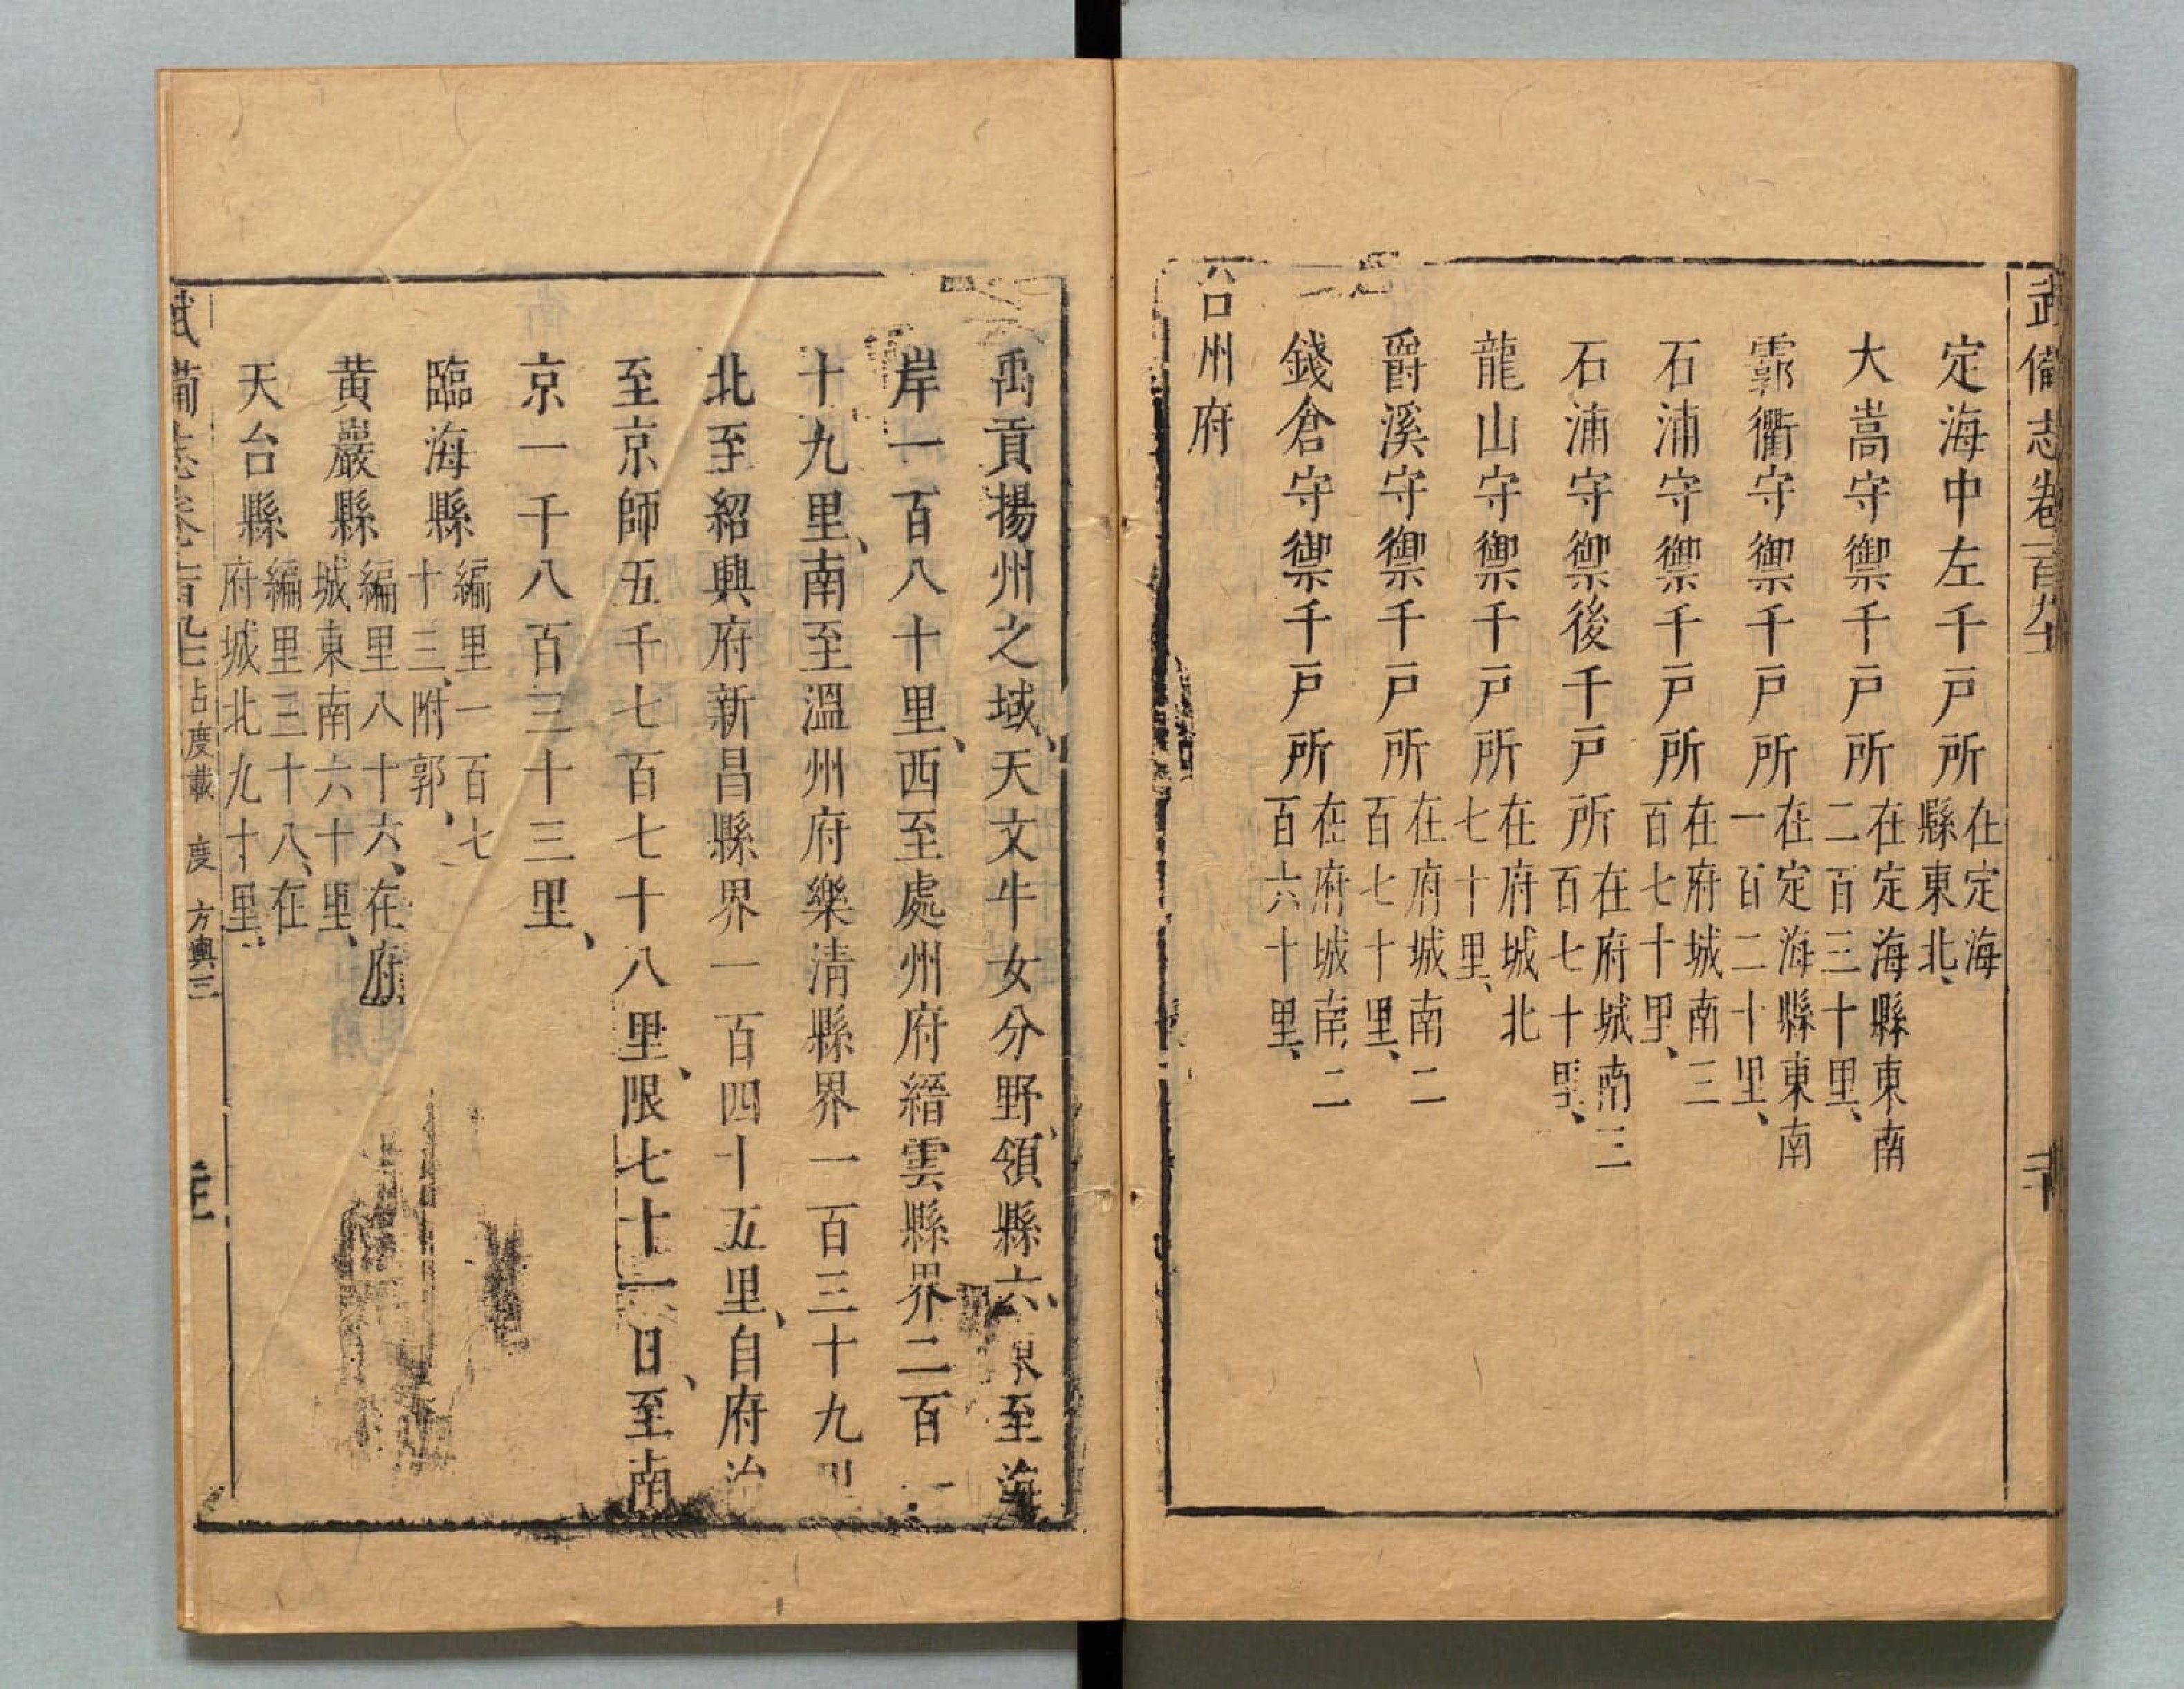 武備志卷一百九十
定海中左千戸所在定海縣東北、
大嵩守禦千戸所在定海縣東南二百三十里、
霩衢守禦千戸所在定海縣東南一百二十里、
石浦守禦千戸所在府城南三百七十里、
石浦守禦後千戸所在府城南三百七十里、
龍山守禦千戸所在府城北七十里、
爵溪守禦千戸所在府城南二百七十里、
錢倉守禦千戸所在府城南二百六十里、
台州府
禹貢揚州之域、天文牛女分野、領縣六、東至海
岸一百八十里、西至處州府縉雲縣界二百一
十九里、南至溫州府樂清縣界一百三十九里
北至紹興府新昌縣界一百四十五里、自府治
至京師五千七百七十八里、限七十一日、至南
京一千八百三十三里、
臨海縣編里一百七十三、附郭、
黄巖縣編里八十六、在府城東南六十里、
天台縣編里三十八、在府城北九十里、
武備志卷一百九十 占度載 度 方輿三